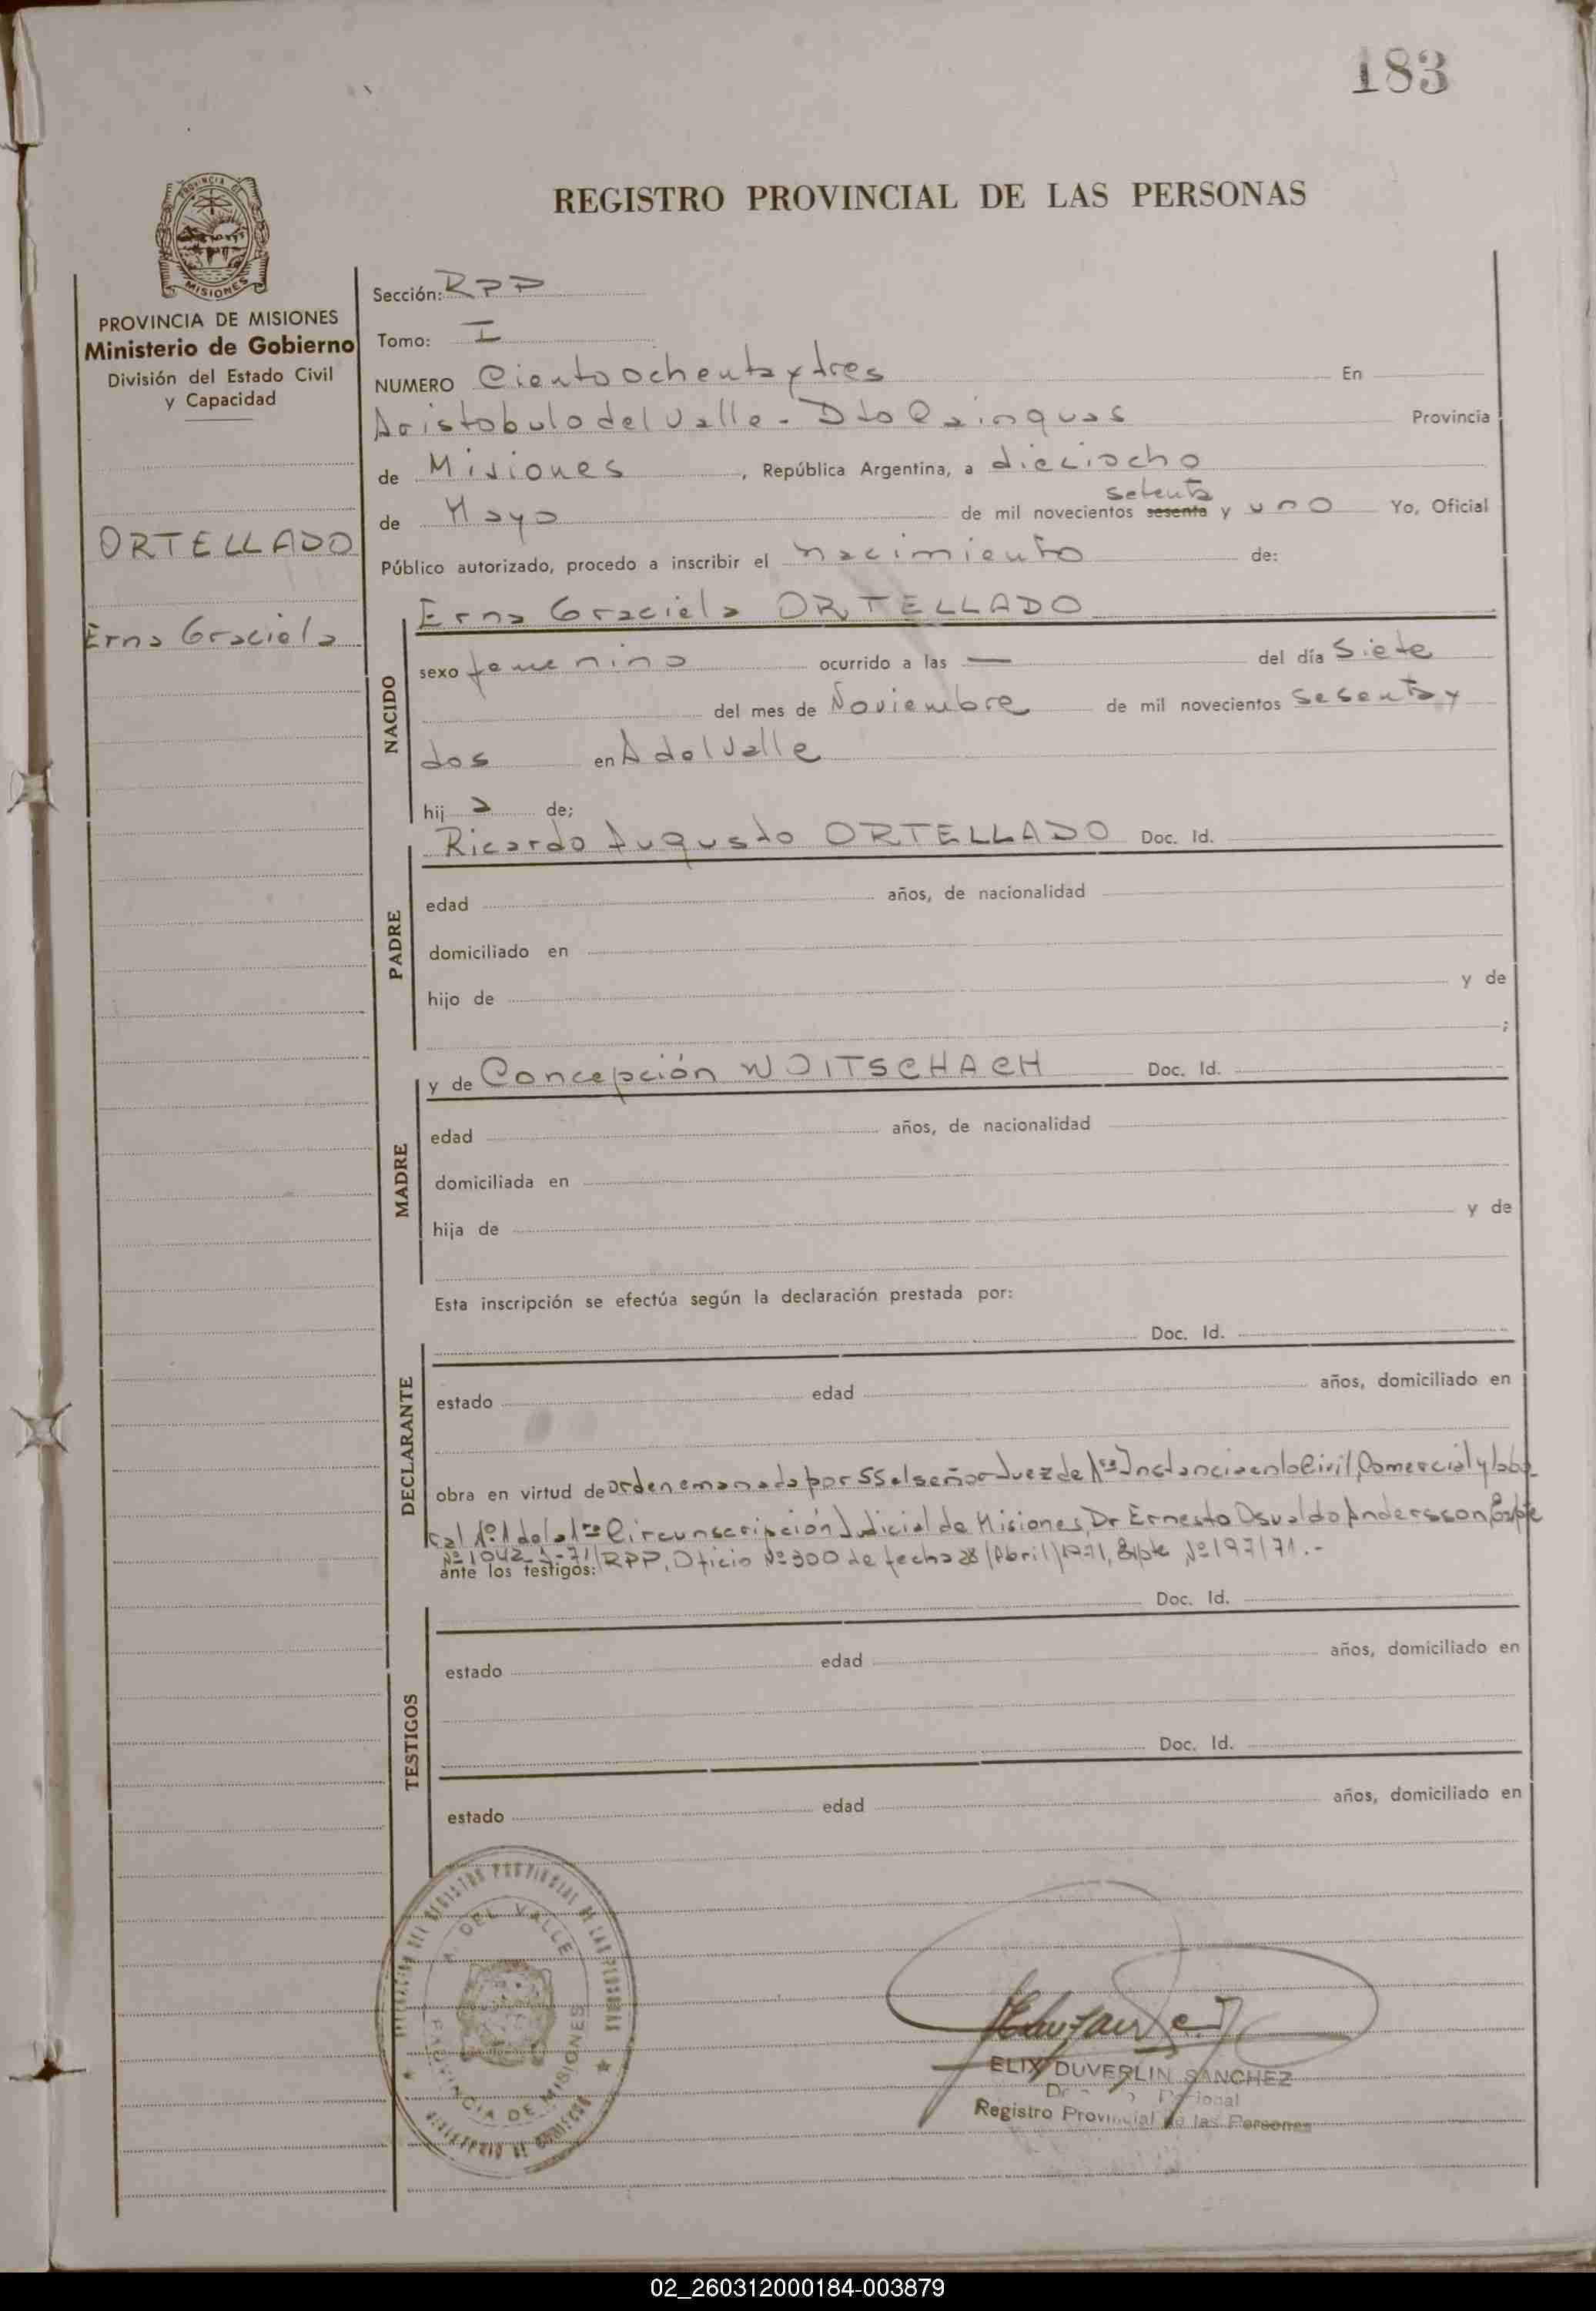 183
REGISTRO PROVINCIAL DE LAS PERSONAS
PROVINCIA DE MISIONES
Ministerio de Gobierno
División del Estado Civil
y Capacidad
ORTELLADO
Erna Graciela
Sección: RPP
Tomo: I
NUMERO Ciento ochenta y tres En
Aristobulo del Valle - Dto Cainguas Provincia
de Misiones, República Argentina, a dieciocho
setenta
de Mayo de mil novecientos sesenta y uno Yo, Oficial
Público autorizado, procedo a inscribir el nacimiento de:
NACIDO
Erna Graciela ORTELLADO
sexo femenino ocurrido a las — del día Siete
del mes de Noviembre de mil novecientos sesenta y
dos en A del Valle
hij a de;
PADRE
Ricardo Augusto ORTELLADO Doc. Id.
edad años, de nacionalidad
domiciliado en
hijo de y de
;
MADRE
y de Concepción WOITSCHACH Doc. Id.
edad años, de nacionalidad
domiciliada en
hija de y de
Esta inscripción se efectúa según la declaración prestada por:
DECLARANTE
Doc. Id.
estado edad años, domiciliado en
obra en virtud de orden emanada por SS el señor Juez de 1ra Instancia en lo Civil, Comercial y labo
ral Nº 1 de la 1ra Circunscripción Judicial de Misiones, Dr Ernesto Osvaldo Andersson, Expte
Nº 1042 - -71/RPP, Oficio Nº 300 de fecha 28/Abril/1971, Expte Nº 197/71.-
ante los testigos:
TESTIGOS
Doc. Id.
estado edad años, domiciliado en
Doc. Id.
estado edad años, domiciliado en
DEL REGISTRO PROVINCIAL DE LAS PERSONAS
A. DEL VALLE
PROVINCIA DE MISIONES
MINISTERIO DE GOBIERNO
ELIX DUVERLIN SANCHEZ
Registro Provincial de las Personas
02_260312000184-003879